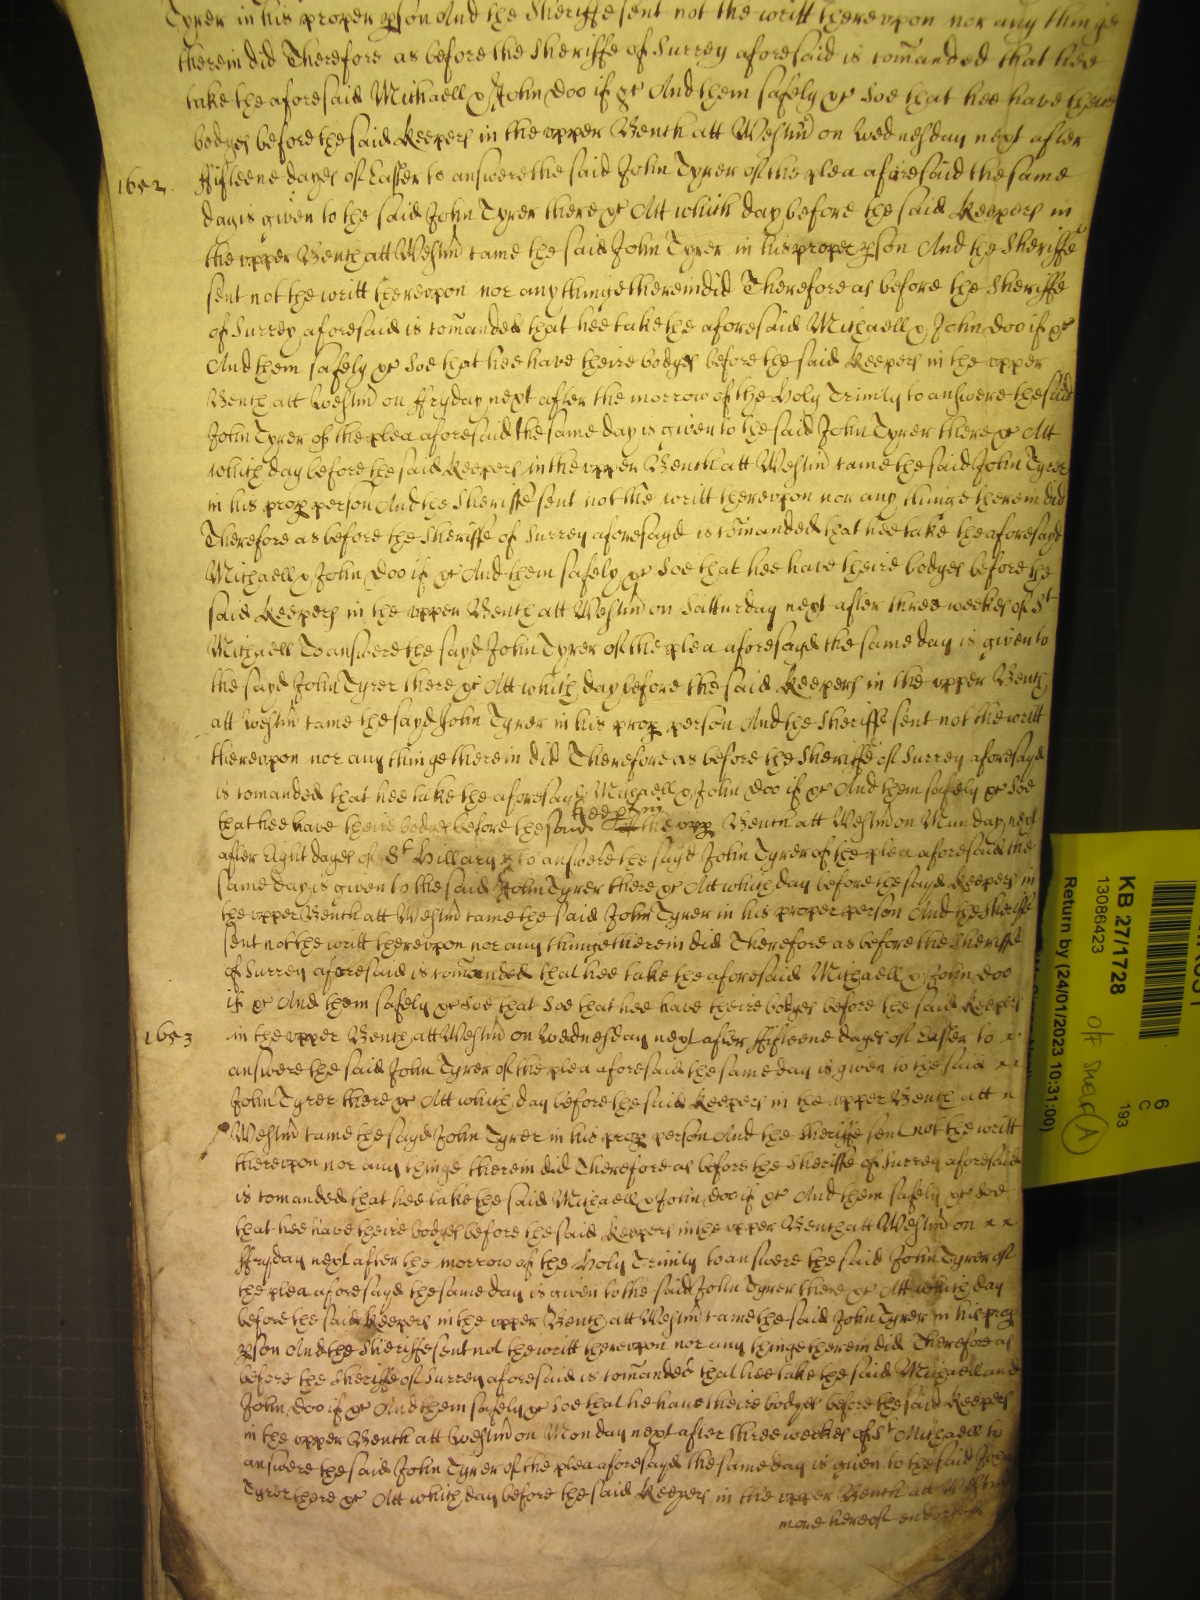 Tyrer in his proper pson And the Sheriffe sent not the writt therevpon nor any thinge
therein did Therefore as before the Sheriffe of Surrey aforesaid is comanded that hee
take the aforesaid Michaell & John Doo if &c And them safely &c Soe that hee have theire
bodyes before the said Keepers in the vpper Bench att Westm on Wednesday next after
1652. ffifteene dayes of Easter to answere the said John Tyrer of the plea aforesaid the same
day is given to the said John Tyrer there &c Att which day before the said Keepers in
the vpper Bench att Westm came the said John Tyrer in his proper pson And the Sheriffe
sent not the writt therevpon nor any thinge therein did Therefore as before the Sheriffe
of Surrey aforesaid is comanded that hee take the aforesaid Michaell & John Doo if &c
And them safely &c Soe that hee have theire bodyes before the said Keepers in the vpper
Bench att Westm on ffryday next after the morrow of the Holy Trinity to answere the said
John Tyrer of the plea aforesaid the same day is given to the said John Tyrer there &c Att
which day before the said Keepers in the vpper Bench att Westm came the said John Tyrer
in his prop person And the Sheriffe sent not the writt therevpon nor any thinge therein did
Therefore as before the Sheriffe of Surrey aforesayd is comanded that hee take the aforesayd
Michaell & John Doo if &c And them safely &c Soe that hee have theire bodyes before the
said Keepers in the vpper Bench att Westm on Satturday next after three weekes of St
Michaell To answere the sayd John Tyrer of the plea aforesayd the same day is given to
the sayd John Tyrer there &c Att which day before the said Keepers in the vpper Bench
att Westm came the sayd John Tyrer in his prop person And the Sheriffe sent not the writt
therevpon nor any thinge therein did Therefore as before the Sheriffe of Surrey aforesayd
is comanded that hee take the aforesayd Michaell & John Doo if &c And them safely &c Soe
that hee have theire bodyes before the said Keeps in the vpp Bench att Westm on Munday next
after Eight dayes of St Hillary to answere the sayd John Tyrer of the plea aforesaid the
same day is given to the said John Tyrer there &c Att which day before the sayd Keepers in
the vpper Bench att Westm came the said John Tyrer in his proper person And the Sheriffe
sent not the writt therevpon nor any thinge therein did Therefore as before the Sheriffe
of Surrey aforesaid is comanded that hee take the aforesaid Michaell & John Doo
if &c And them safely &c Soe that Soe that hee have theire bodyes before the said Keepers
1653 in the vpper Bench att Westm on Wednesday next after ffifteene dayes of Easter to
answere the said John Tyrer of the plea aforesaid the same day is given to the said
John Tyrer there &c Att which day before the said Keepers in the vpper Bench att
Westm came the sayd John Tyrer in his prop person And the Sheriffe sent not the writt
therevpon nor any thinge therein did Therefore as before the Sheriffe of Surrey aforesaid
is comanded that hee take the said Michaell & John Doo if &c And them safely &c Soe
that hee have theire bodyes before the said Keepers in the vpper Bench att Westm on
ffryday next after the morrow of the Holy Trinity to answere the said John Tyrer of
the plea aforesayd the same day is given to the said John Tyrer there &c Att which day
before the said Keepers in the vpper Bench att Westm came the said John Tyrer in his prop
pson And the Sheriffe sent not the writt therevpon nor any thinge therein did Therefore as
before the Sheriffe of Surrey aforesaid is comanded that hee take the said Michaell and
John Doo if &c And them safely &c Soe that he have theire bodyes before the said Keepers
in the vpper Bench att Westm on Monday next after three weekes of St Michaell to
answere the said John Tyrer of the plea aforesayd the same day is given to the said John
Tyrer there &c Att which day before the said Keepers in the vpper Bench att Westm
more hereof endorsed
KB 27/1728
13086423
Return by (24/01/2023 10:31:00)
6
C
193
O/F SHELF (A)